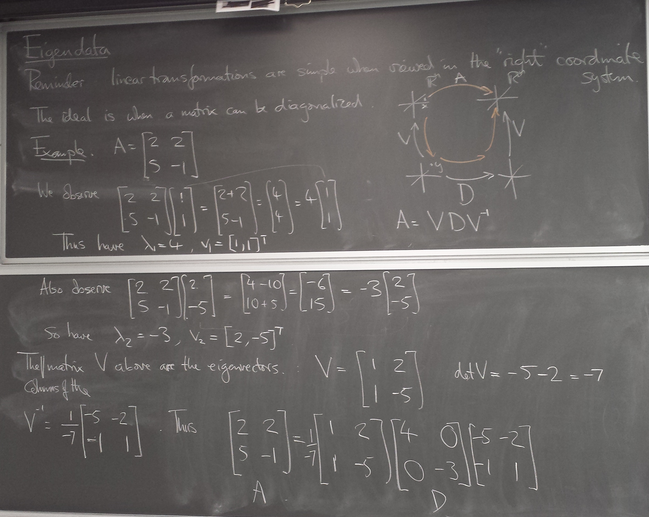 Eigendata
Reminder linear transformations are simple when viewed in the "right" coordinate system.
The ideal is when a matrix can be diagonalized.
ℝⁿ A ℝⁿ
V V
x
y
D
A = VDV⁻¹
Example. A = [2 2; 5 -1]
We observe [2 2; 5 -1][1; 1] = [2+2; 5-1] = [4; 4] = 4[1; 1]
Thus have λ₁=4, v₁=[1,1]ᵀ
Also observe [2 2; 5 -1][2; -5] = [4-10; 10+5] = [-6; 15] = -3[2; -5]
So have λ₂ = -3, v₂ = [2, -5]ᵀ
The columns of the matrix V above are the eigenvectors. : V = [1 2; 1 -5] det V = -5-2 = -7
V⁻¹ = 1/-7 [-5 -2; -1 1]. Thus [2 2; 5 -1] = 1/-7 [1 2; 1 -5][4 0; 0 -3][-5 -2; -1 1]
A D